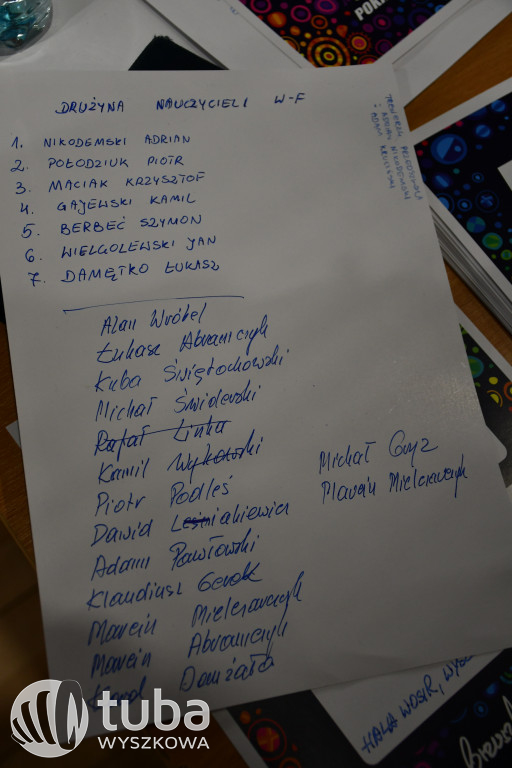 DRUŻYNA NAUCZYCIELI W-F
1. NIKODEMSKI ADRIAN
2. POŁODZIUK PIOTR
3. MACIAK KRZYSZTOF
4. GAJEWSKI KAMIL
5. BERBEĆ SZYMON
6. WIELGOLEWSKI JAN
7. DAMĘTKO ŁUKASZ
Alan Wróbel
Łukasz Abramczyk
Kuba Świętochowski
Michał Świderski
Rafał Linka
Kamil Wykowski
Piotr Podleś
Dawid Leśniakiewicz
Adam Pawłowski
Klaudiusz
Marcin Mielczarczyk
Marcin Abramczyk
Domżała
Michał Gryz
Marcin Mielczarczyk
ADRIAN NIKODEMSKI
HALA WOSIR,
tuba
WYSZKOWA